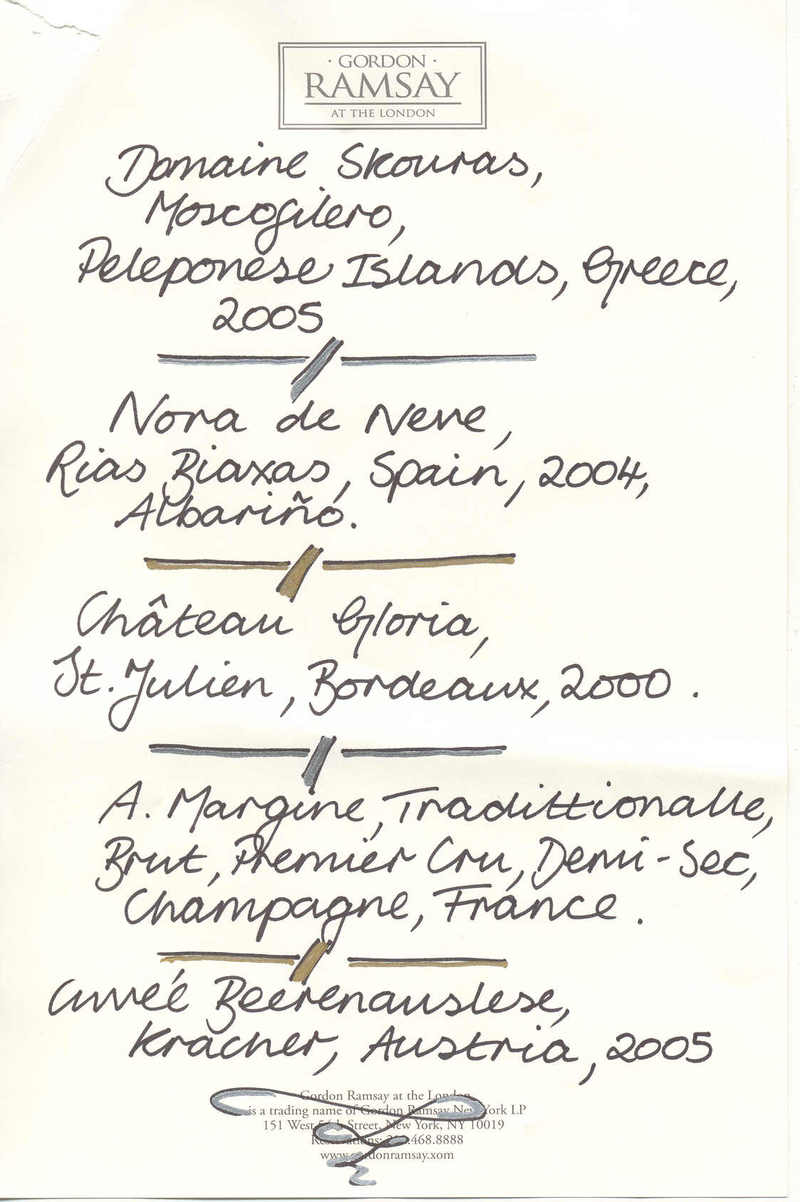 · GORDON ·
RAMSAY
AT THE LONDON
Domaine Skouras,
Moscofilero,
Peleponese Islands, Greece,
2005
Nora de Neve,
Rias Biaxas, Spain, 2004,
Albariñó.
Château Gloria,
St. Julien, Bordeaux, 2000.
A. Margine, Tradittionalle,
Brut, Premier Cru, Demi-Sec,
Champagne, France.
Cuvéé Beerenauslese,
Kracher, Austria, 2005
Gordon Ramsay at the London
is a trading name of Gordon Ramsay New York LP
151 West 54th Street, New York, NY 10019
Reservations: .468.8888
www.gordonramsay.xom